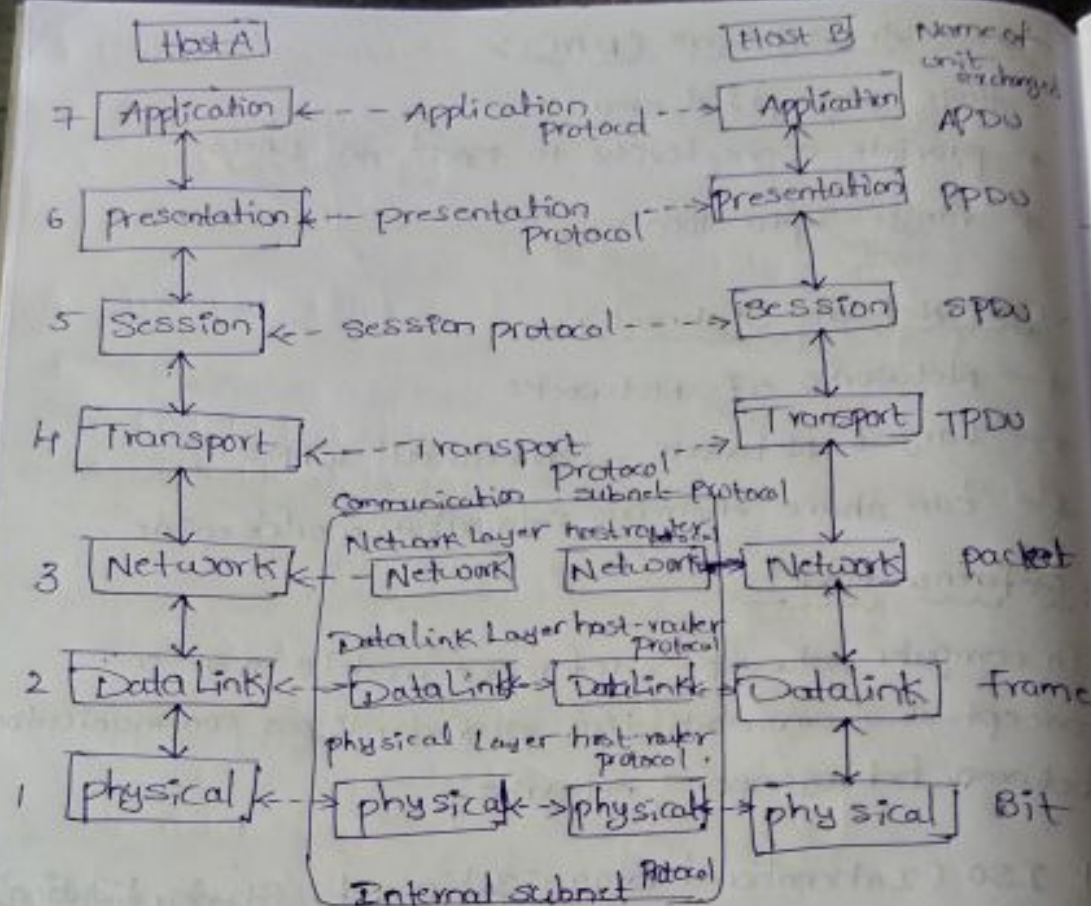 Host A
Host B
Name of
unit
exchanged
7 Application
Application
protocol
Application
APDU
6 presentation
presentation
protocol
presentation
PPDU
5 Session
session protocol
session
SPDU
4 Transport
Transport
protocol
Transport
TPDU
Communication subnet protocol
Network Layer host router
3 Network
Network
Network
Network
packet
Datalink Layer host-router
Protocol
2 Data Link
DataLink
DataLink
Datalink
frame
physical Layer host-router
protocol.
1 physical
physical
physical
physical
Bit
Internal subnet Protocol